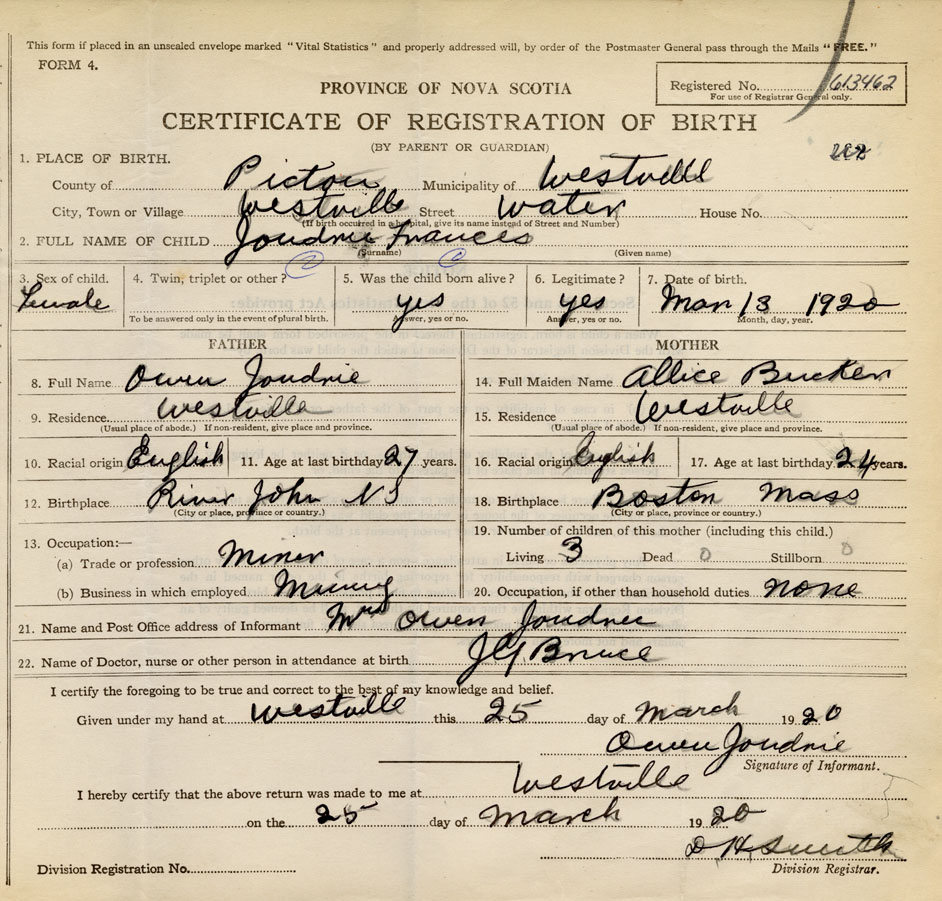 This form if placed in an unsealed envelope marked "Vital Statistics" and properly addressed will, by order of the Postmaster General pass through the Mails "FREE."
FORM 4.
Registered No. 613462
For use of Registrar General only.
PROVINCE OF NOVA SCOTIA
CERTIFICATE OF REGISTRATION OF BIRTH
(BY PARENT OR GUARDIAN)
1. PLACE OF BIRTH.
County of Pictou Municipality of Westville
City, Town or Village Westville Street Water House No.
(If birth occurred in a hospital, give its name instead of Street and Number)
2. FULL NAME OF CHILD Joudrie Frances
(Surname) (Given name)
3. Sex of child. 4. Twin, triplet or other? 5. Was the child born alive? 6. Legitimate? 7. Date of birth.
Female yes yes Mar 13 1920
To be answered only in the event of plural birth. Answer, yes or no. Answer, yes or no. Month, day, year.
FATHER
8. Full Name Owen Joudrie
9. Residence Westville
(Usual place of abode.) If non-resident, give place and province.
10. Racial origin English 11. Age at last birthday 27 years.
12. Birthplace River John N S
(City or place, province or country.)
13. Occupation:—
(a) Trade or profession Miner
(b) Business in which employed Mining
MOTHER
14. Full Maiden Name Allice Bucken
15. Residence Westville
(Usual place of abode.) If non-resident, give place and province.
16. Racial origin English 17. Age at last birthday 24 years.
18. Birthplace Boston Mass
(City or place, province or country.)
19. Number of children of this mother (including this child.)
Living 3 Dead 0 Stillborn 0
20. Occupation, if other than household duties none
21. Name and Post Office address of Informant Mrs Owen Joudrie
22. Name of Doctor, nurse or other person in attendance at birth J G Bruce
I certify the foregoing to be true and correct to the best of my knowledge and belief.
Given under my hand at Westville this 25 day of March 1920
Owen Joudrie
Signature of Informant.
I hereby certify that the above return was made to me at Westville
on the 25 day of March 1920
D H Smith
Division Registrar.
Division Registration No.